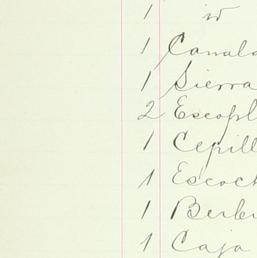 1 id
1 Canala
1 Sierra
2 Escopl
1 Cepill
1 Escoc
1 Berb
1 Caja